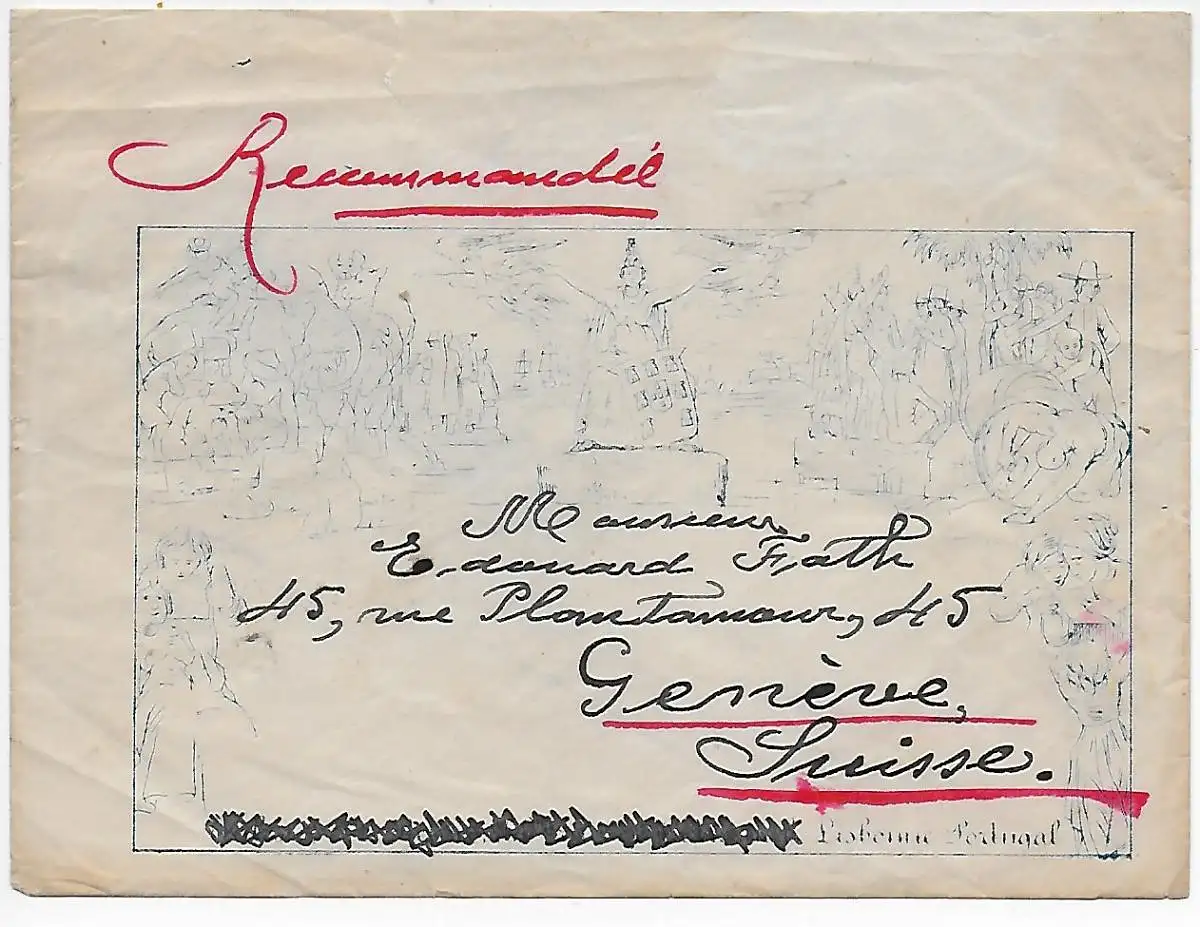 Recommandée
Monsieur
Edouard Fath
45, rue Plantamour, 45
Genève,
Suisse.
Lisbonne Portugal